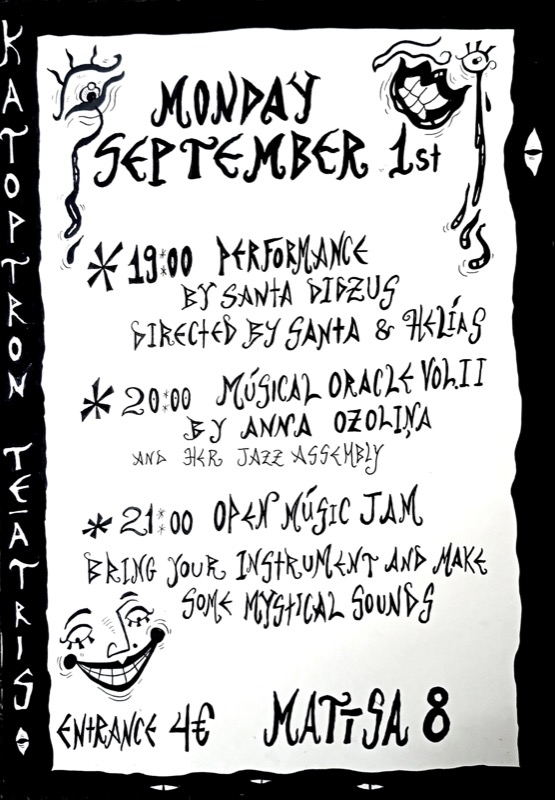 KATOPTRON TEĀTRIS
MONDAY
SEPTEMBER 1st
* 19:00 PERFORMANCE
BY SANTA DIDŽUS
DIRECTED BY SANTA & HELÍAS
* 20:00 MÚSICAL ORACLE VOL.II
BY ANNA OZOLIŅA
AND HER JAZZ ASSEMBLY
* 21:00 OPEN MÚSIC JAM
BRING YOUR INSTRUMENT AND MAKE
SOME MYSTICAL SOUNDS
ENTRANCE 4€ MATĪSA 8